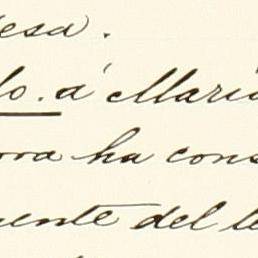 esa.
lo. á Mari
ora ha cons
mente del te